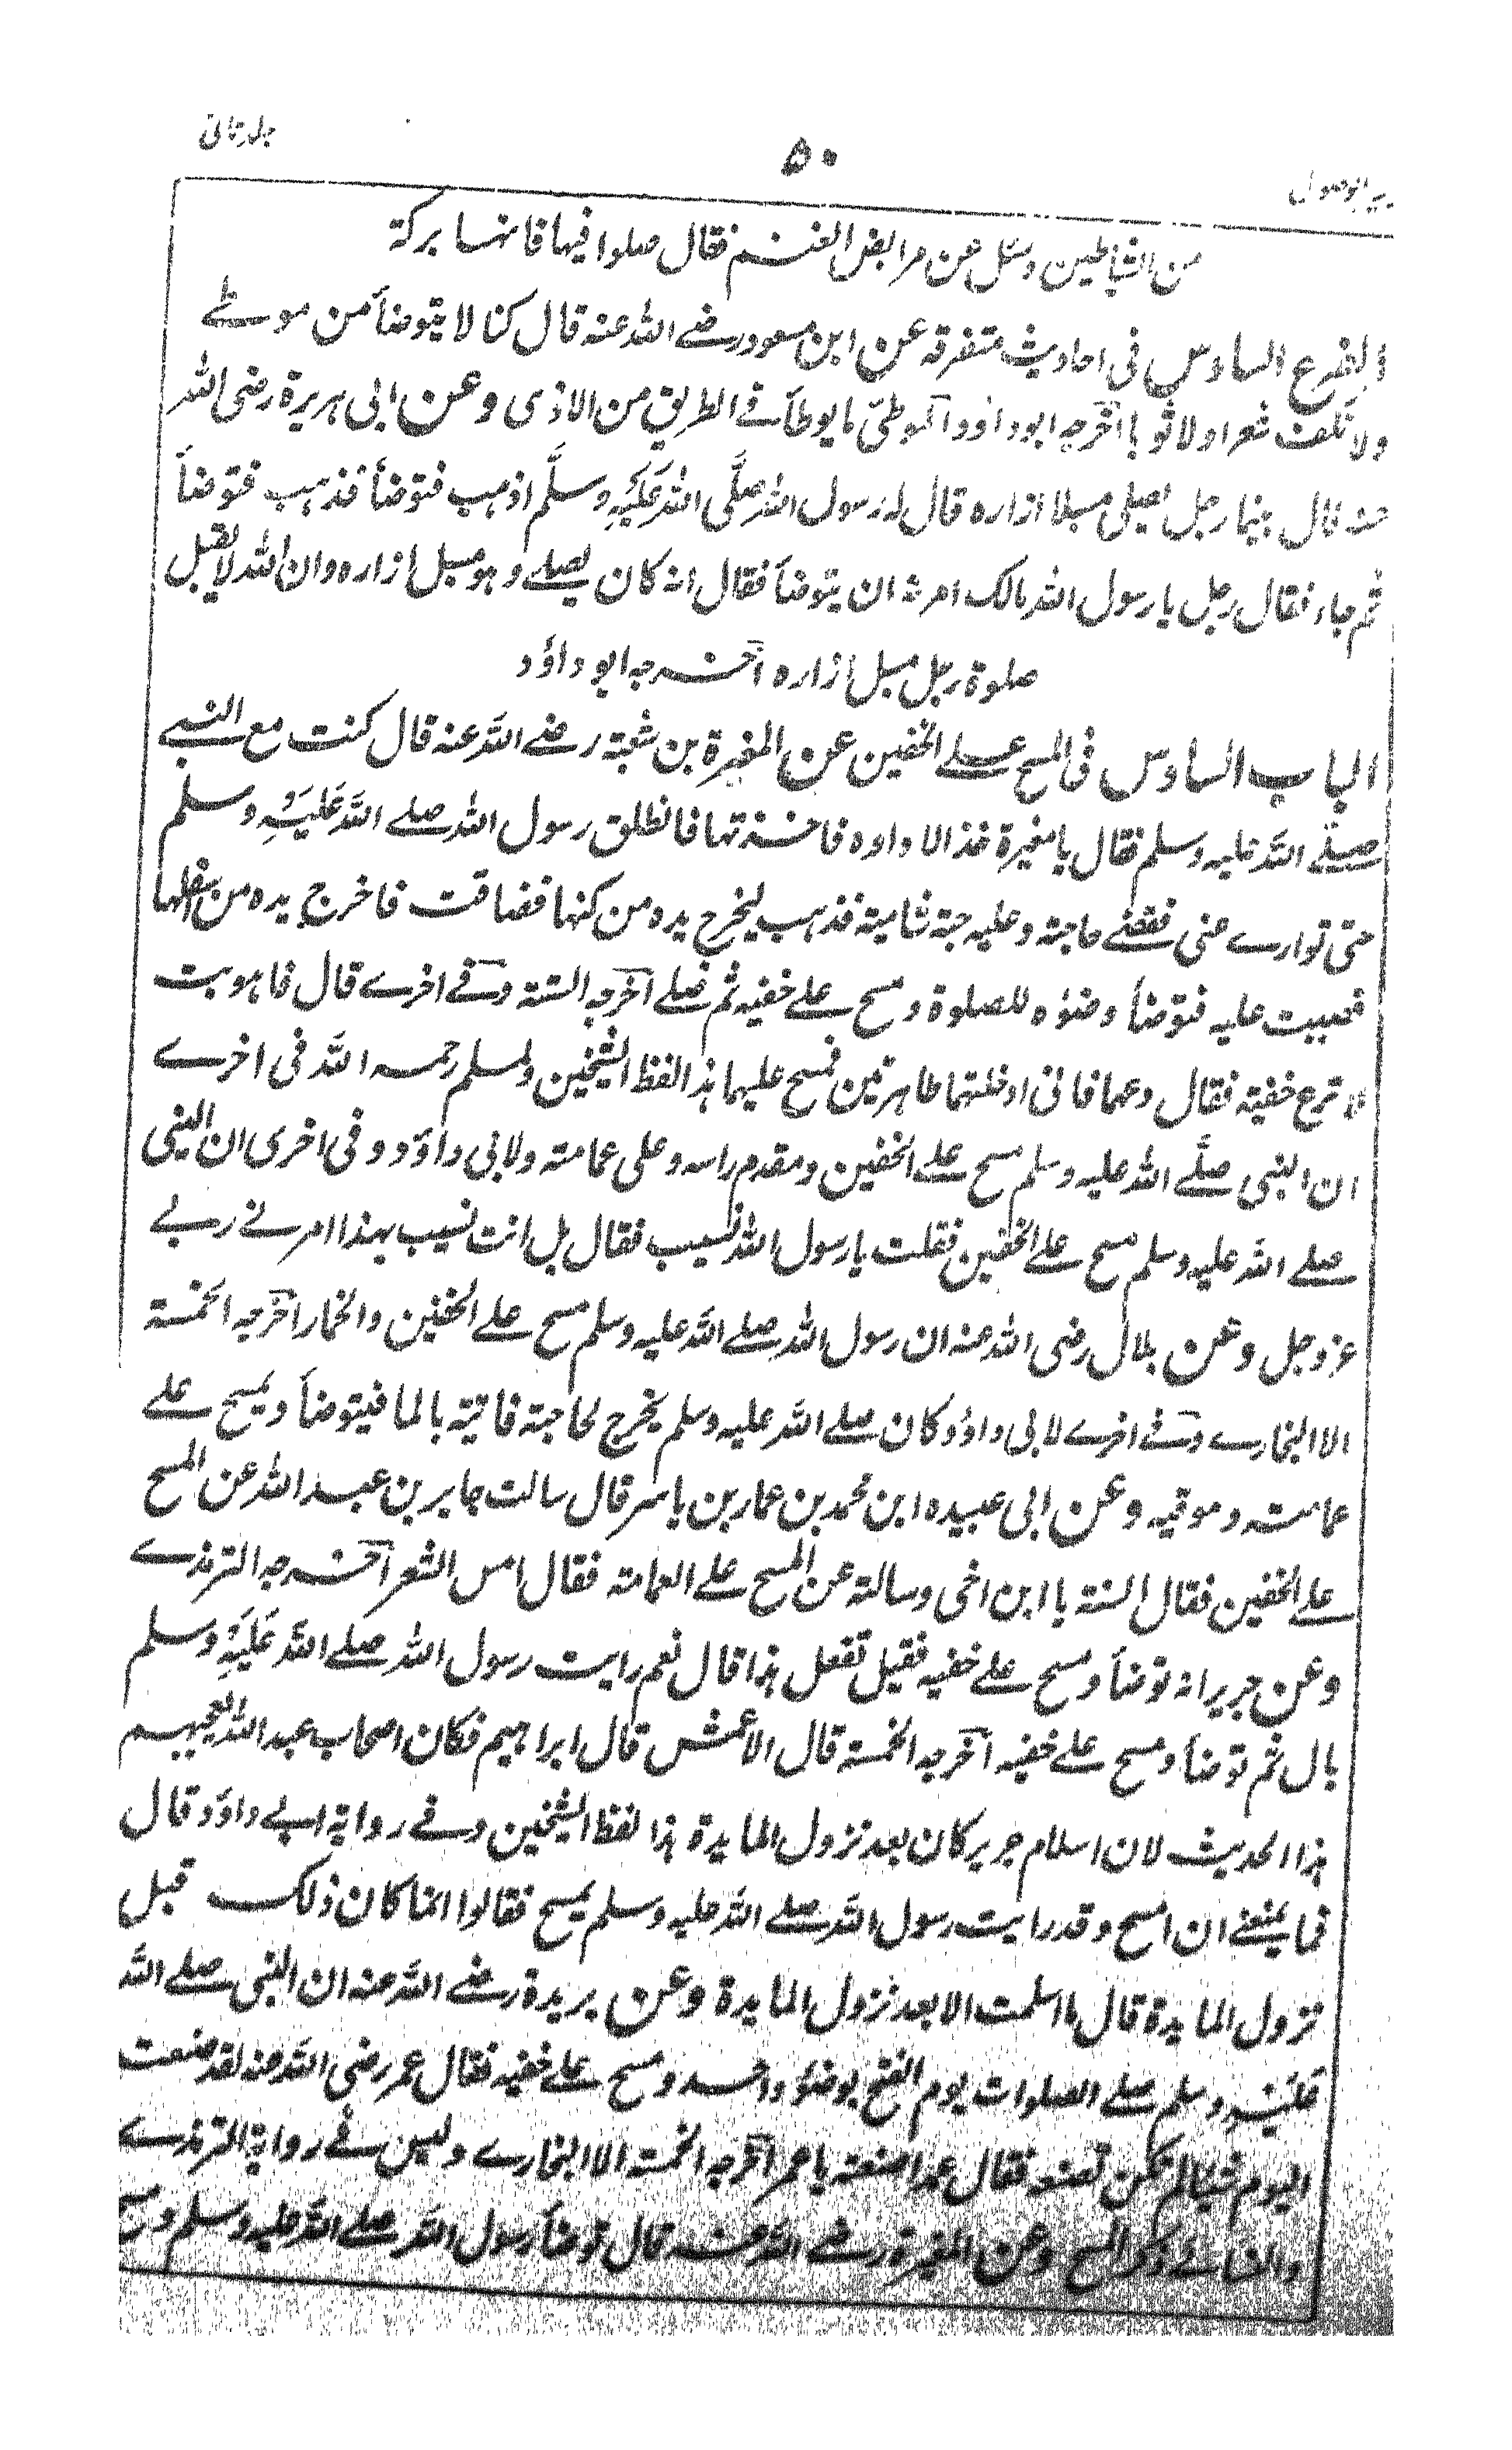 جلد ثانی
۵۰
من الشیاطین وسئل عن مرابض الغنم فقال صلوا فیها فانها برکة
الفرع السادس فی احادیث متفرقه عن ابن مسعود رضے الله عنه قال کنا لا یتوضأ من موطے
ولا نکف شعرا ولا ثوبا اخرجه ابو داؤد الموطئ ما یوطأ فے الطریق من الاذی وعن ابی هریرة رضی الله
عنه قال بینما رجل یصلی مسبلا ازاره قال له رسول الله صلَّی الله عَلَیْهِ وسلَّم اذهب فتوضأ فذهب فتوضأ
ثم جاء فقال رجل یا رسول الله مالک امرته ان یتوضأ فقال انه کان یصلے وهو مسبل ازاره وان الله لا یقبل
صلوة رجل مسبل ازاره اخرجه ابو داؤد
الباب السادس فی المسح علے الخفین عن المغیرة بن شعبة رضے الله عنه قال کنت مع النبے
صلّے الله علیه وسلم فقال یا مغیرة خذ الاداوه فاخذتها فانطلق رسول الله صلے الله عَلَیْهِ وسلم
حتی توارے عنی فقضے حاجته وعلیه جبة شامیة فذهب لیخرج یده من کمها فضاقت فاخرج یده من اسفلها
فصببت علیه فتوضأ وضؤه للصلوة ومسح علے خفیه ثم صلے اخرجه الستة وفے اخرے قال فاهویت
لانزع خفیة فقال دعهما فانی ادخلتهما طاهرتین فمسح علیهما هذا لفظ الشیخین ولمسلم رحمه الله فی اخرے
ان النبی صلَّے الله علیه وسلم مسح علے الخفین ومقدم راسه وعلی عمامته ولابی داؤد وفی اخری ان النبی
صلے الله علیه وسلم مسح علے الخفین فقلت یا رسول الله نسیت فقال بل انت نسیت بهذا امرنے ربے
عز وجل وعن بلال رضی الله عنه ان رسول الله صلے الله علیه وسلم مسح علے الخفین والخمار اخرجه الخمسة
الا البخارے وفے اخرے لابی داؤد کان صلے الله علیه وسلم یخرج لحاجته فاتیه بالما فیتوضأ ویمسح علے
عمامته وموقیه وعن ابی عبیده ابن محمد بن عمار بن یاسر قال سالت جابر بن عبد الله عن المسح
علے الخفین فقال السنة یا ابن اخی وسالته عن المسح علے العمامة فقال امس الشعر اخرجه الترمذے
وعن جریر انه توضأ ومسح علے خفیه فقیل تفعل هذا قال نعم رایت رسول الله صلے الله عَلَیْهِ وسلم
بال ثم توضأ ومسح علے خفیه اخرجه الخمسة قال الاعمش قال ابراهیم فکان اصحاب عبد الله یعجبهم
هذا الحدیث لان اسلام جریر کان بعد نزول المایدة هذا لفظ الشیخین وفے روایة ابے داؤد قال
فما یمنعنے ان امسح وقد رایت رسول الله صلے الله علیه وسلم یمسح فقالوا انما کان ذلک قبل
نزول المایدة قال ما اسلمت الا بعد نزول المایدة وعن بریدة رضے الله عنه ان النبی صلے الله
عَلَیْهِ وسلم صلے الصلوات یوم الفتح بوضؤ واحد ومسح علے خفیه فقال عمر رضی الله عنه لقد صنعت
الیوم شیئا لم تکن تصنعه فقال عمدا صنعته یا عمر اخرجه الخمسة الا البخارے ولیس فے روایة الترمذے
والنسائے ذکر المسح وعن المغیرة رضے الله عنه قال توضأ رسول الله صلے الله علیه وسلم ومسح